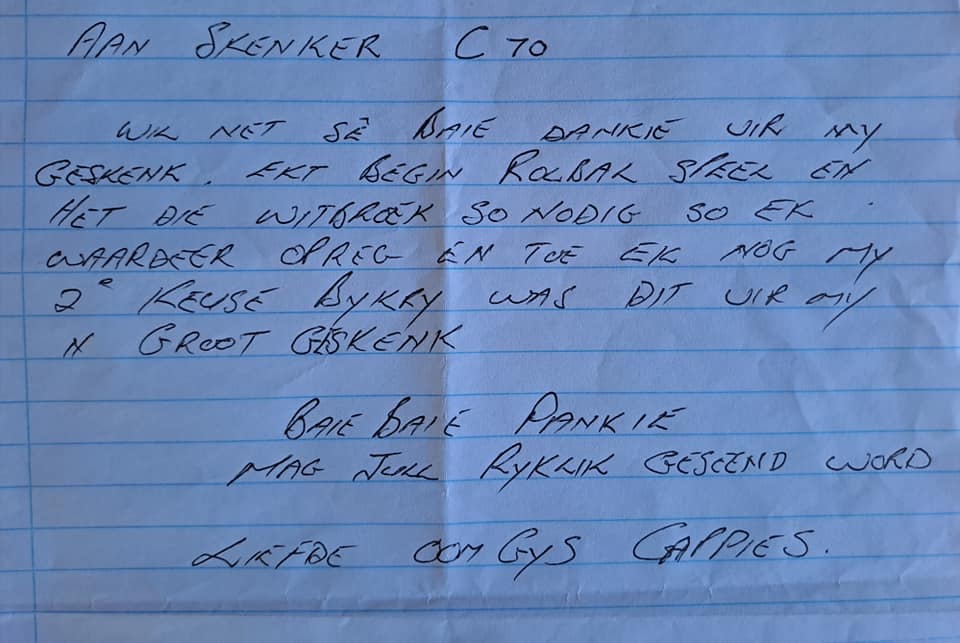 AAN SKENKER C70
WIL NET SÊ BAIE DANKIE VIR MY
GESKENK. EKT BEGIN ROLBAL SPEEL EN
HET DIE WITBROEK SO NODIG SO EK
WAARDEER OPREG EN TOE EK NOG MY
2e KEUSE BYKRY WAS DIT VIR MY
N GROOT GESKENK
BAIE BAIE DANKIE
MAG JULL RYKLIK GESEEND WORD
LIEFDE OOM GYS CAPPIES.